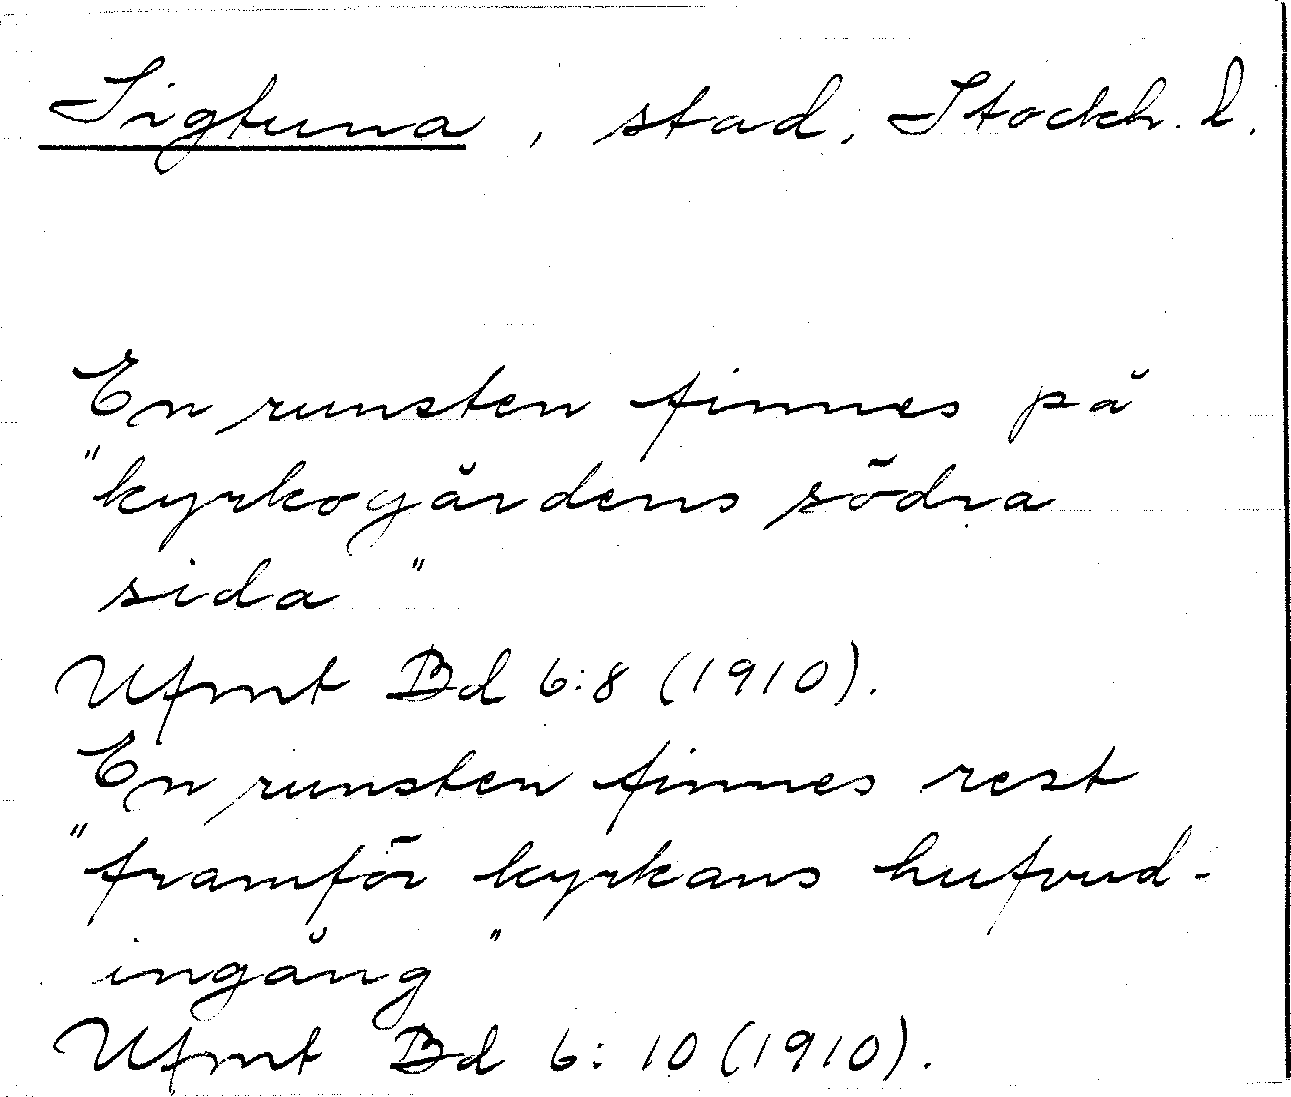 Sigtuna, stad, Stockh. l.
En runsten finnes på
"kyrkogårdens södra
sida"
Ufmt Bd 6:8 (1910).
En runsten finnes rest
"framför kyrkans hufvud-
ingång"
Ufmt Bd 6:10 (1910).